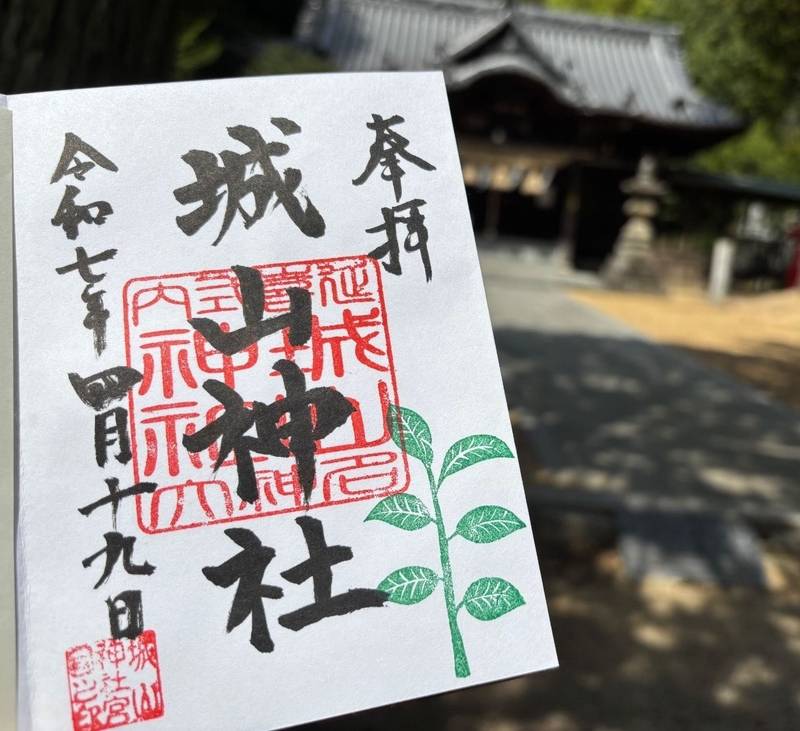 奉拝
城山神社
令和七年四月十九日
延喜式内
城山
神社
城山
神社宮
司之印